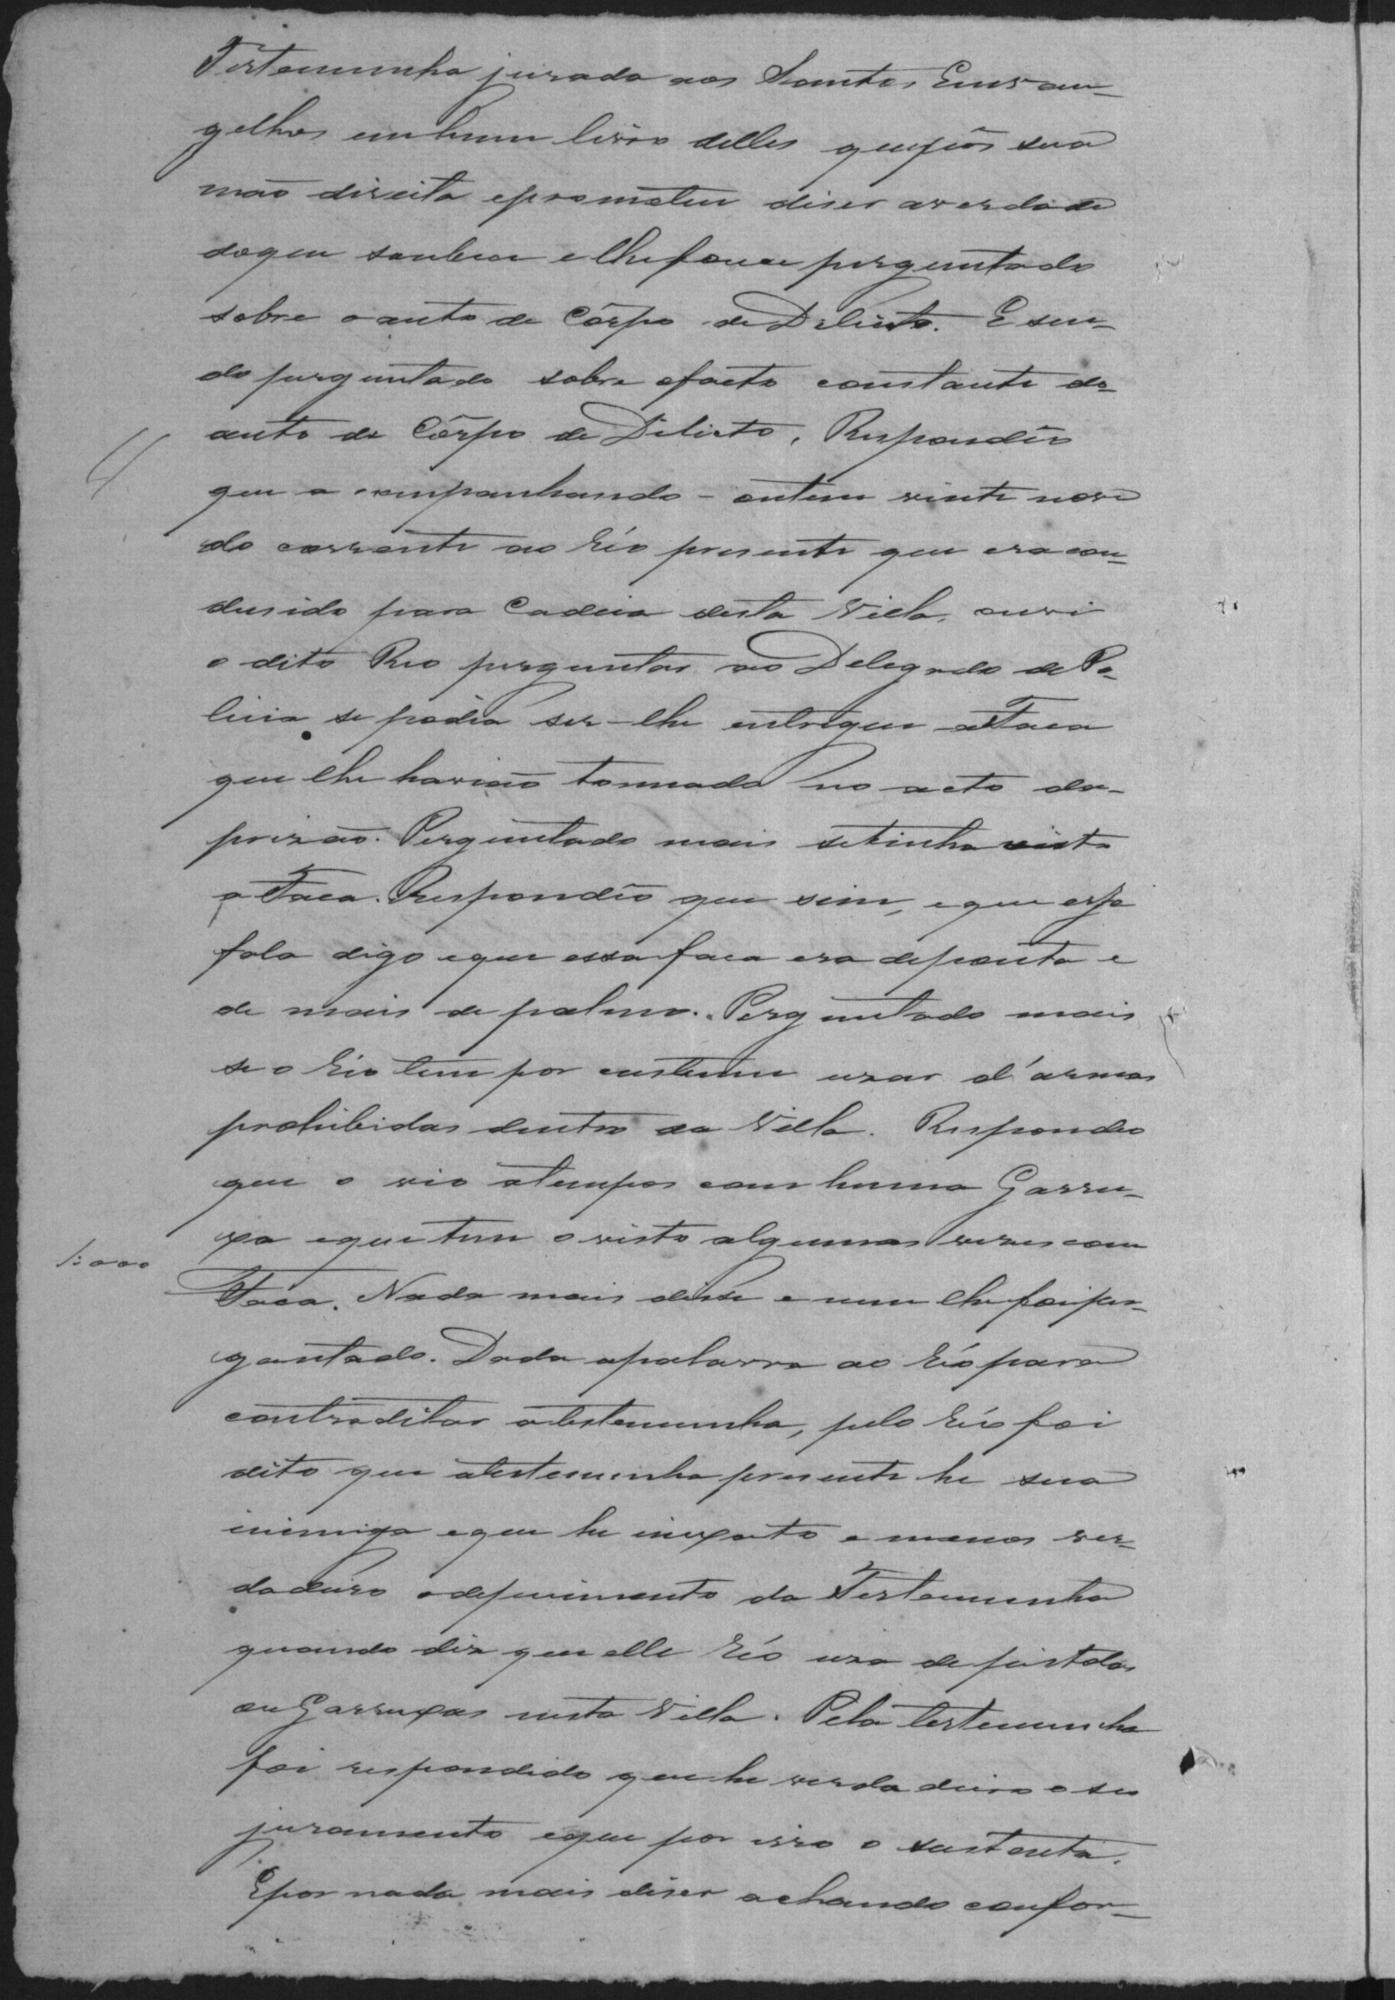 Testemunha jurada aos Santos Euvan-
gelhos em hum livro delles que pôs sua
mão direita e prometeu diser averdade
doque soubece e lhe foce perguntado
sobre o auto de Côrpo de Delicto. E sen-
do perguntado sobre ofacto constante do
auto de Côrpo de Delicto, Respondêo
que acompanhando - ontem vinte nove
do corrente ao Réo presente que era con-
dusido para Cadeia desta Villa, ouvi
o dito Reo perguntar ao Delegado de Po-
licia se podia ser-lhe entregue a Faca
que lhe havião tomado no acto da-
prizão. Perguntado mais se tinha visto
a Faca. Respondêo que sim, e que essa
fala digo e que essa faca era deponta e
de mais de palmo. Perguntado mais
se o Réo tem por custume uzar d'armas
prohibidas dentro da Villa. Respondeo
que o vio atempos com huma Garru-
xa e que tem o visto algumas vezes com
1:000
Faca. Nada mais disse e nem lhe foi per-
guntado. Dada apalavra ao Réo para
contraditar atestemunha, pelo Réo foi
dito que atestemunha presente he sua
inimiga e que he inexato e menos ver-
dadeiro odepuimento da Testemunha
quando diz que elle Réo uza de pistolas
ou Garruxas nesta Villa. Pela testemunha
foi respondido que he verdadeiro o seu
juramento e que por isso o sustenta.
E por nada mais diser achando confor-